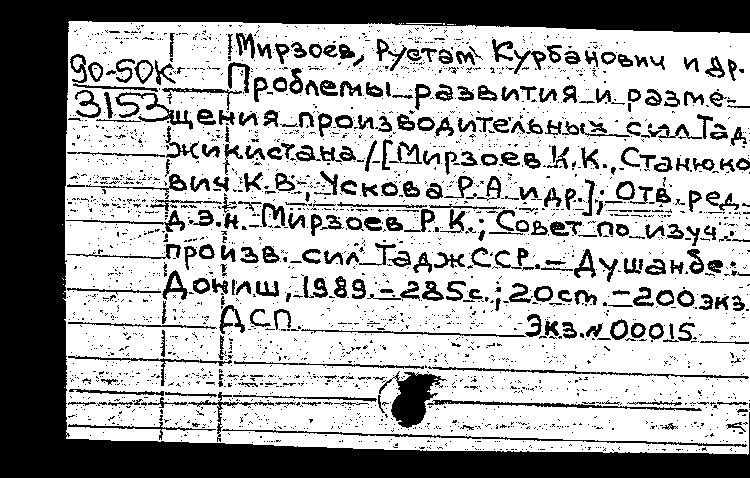 Мирзоев, Рустам Курбанович и др.
90-50К
3153
Проблемы развития и разме-
щения производительных сил Тад
жикистана / [Мирзоев К.К., Станюко
вич К.В., Ускова Р.А. и др.]; Отв. ред.
д.э.н. Мирзоев Р.К.; Совет по изуч.
произв. сил ТаджССР. – Душанбе:
Дониш, 1989. – 285с.; 20см. – 200 экз.
ДСП. Экз. № 00015